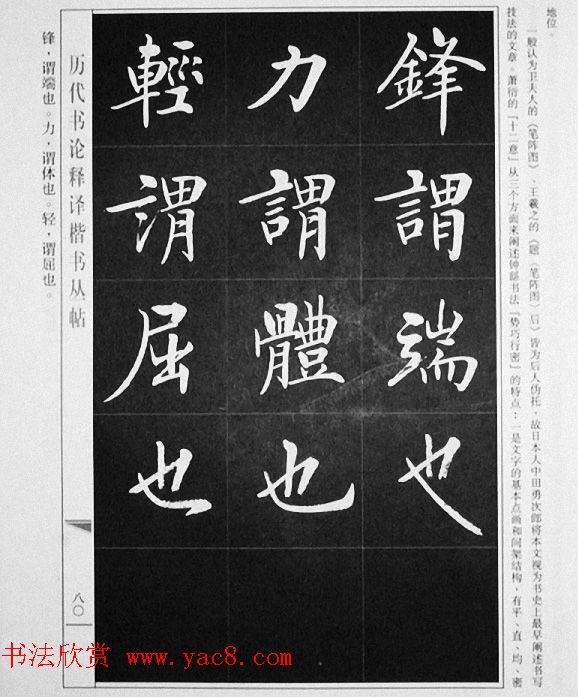 地位。
一般认为卫夫人的《笔阵图》、王羲之的《题〈笔阵图〉后》皆为后人伪托，故日本人中田勇次郎将本文视为书史上最早阐述书写
技法的文章。萧衍的『十二意』从三个方面来阐述钟繇书法『势巧形密』的特点：一是文字的基本点画和间架结构，有平、直、均、密
鋒謂端也
力謂體也
輕謂屈也
历代书论释译楷书丛帖
八〇
锋，谓端也。力，谓体也。轻，谓屈也。
书法欣赏 www.yac8.com